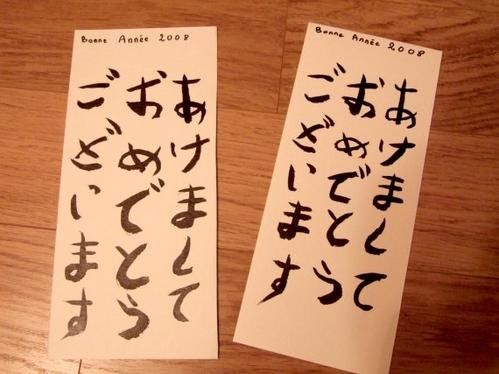 Bonne Année 2008
あけまして
おめでとう
ございます
Bonne Année 2008
あけまして
おめでとう
ございます